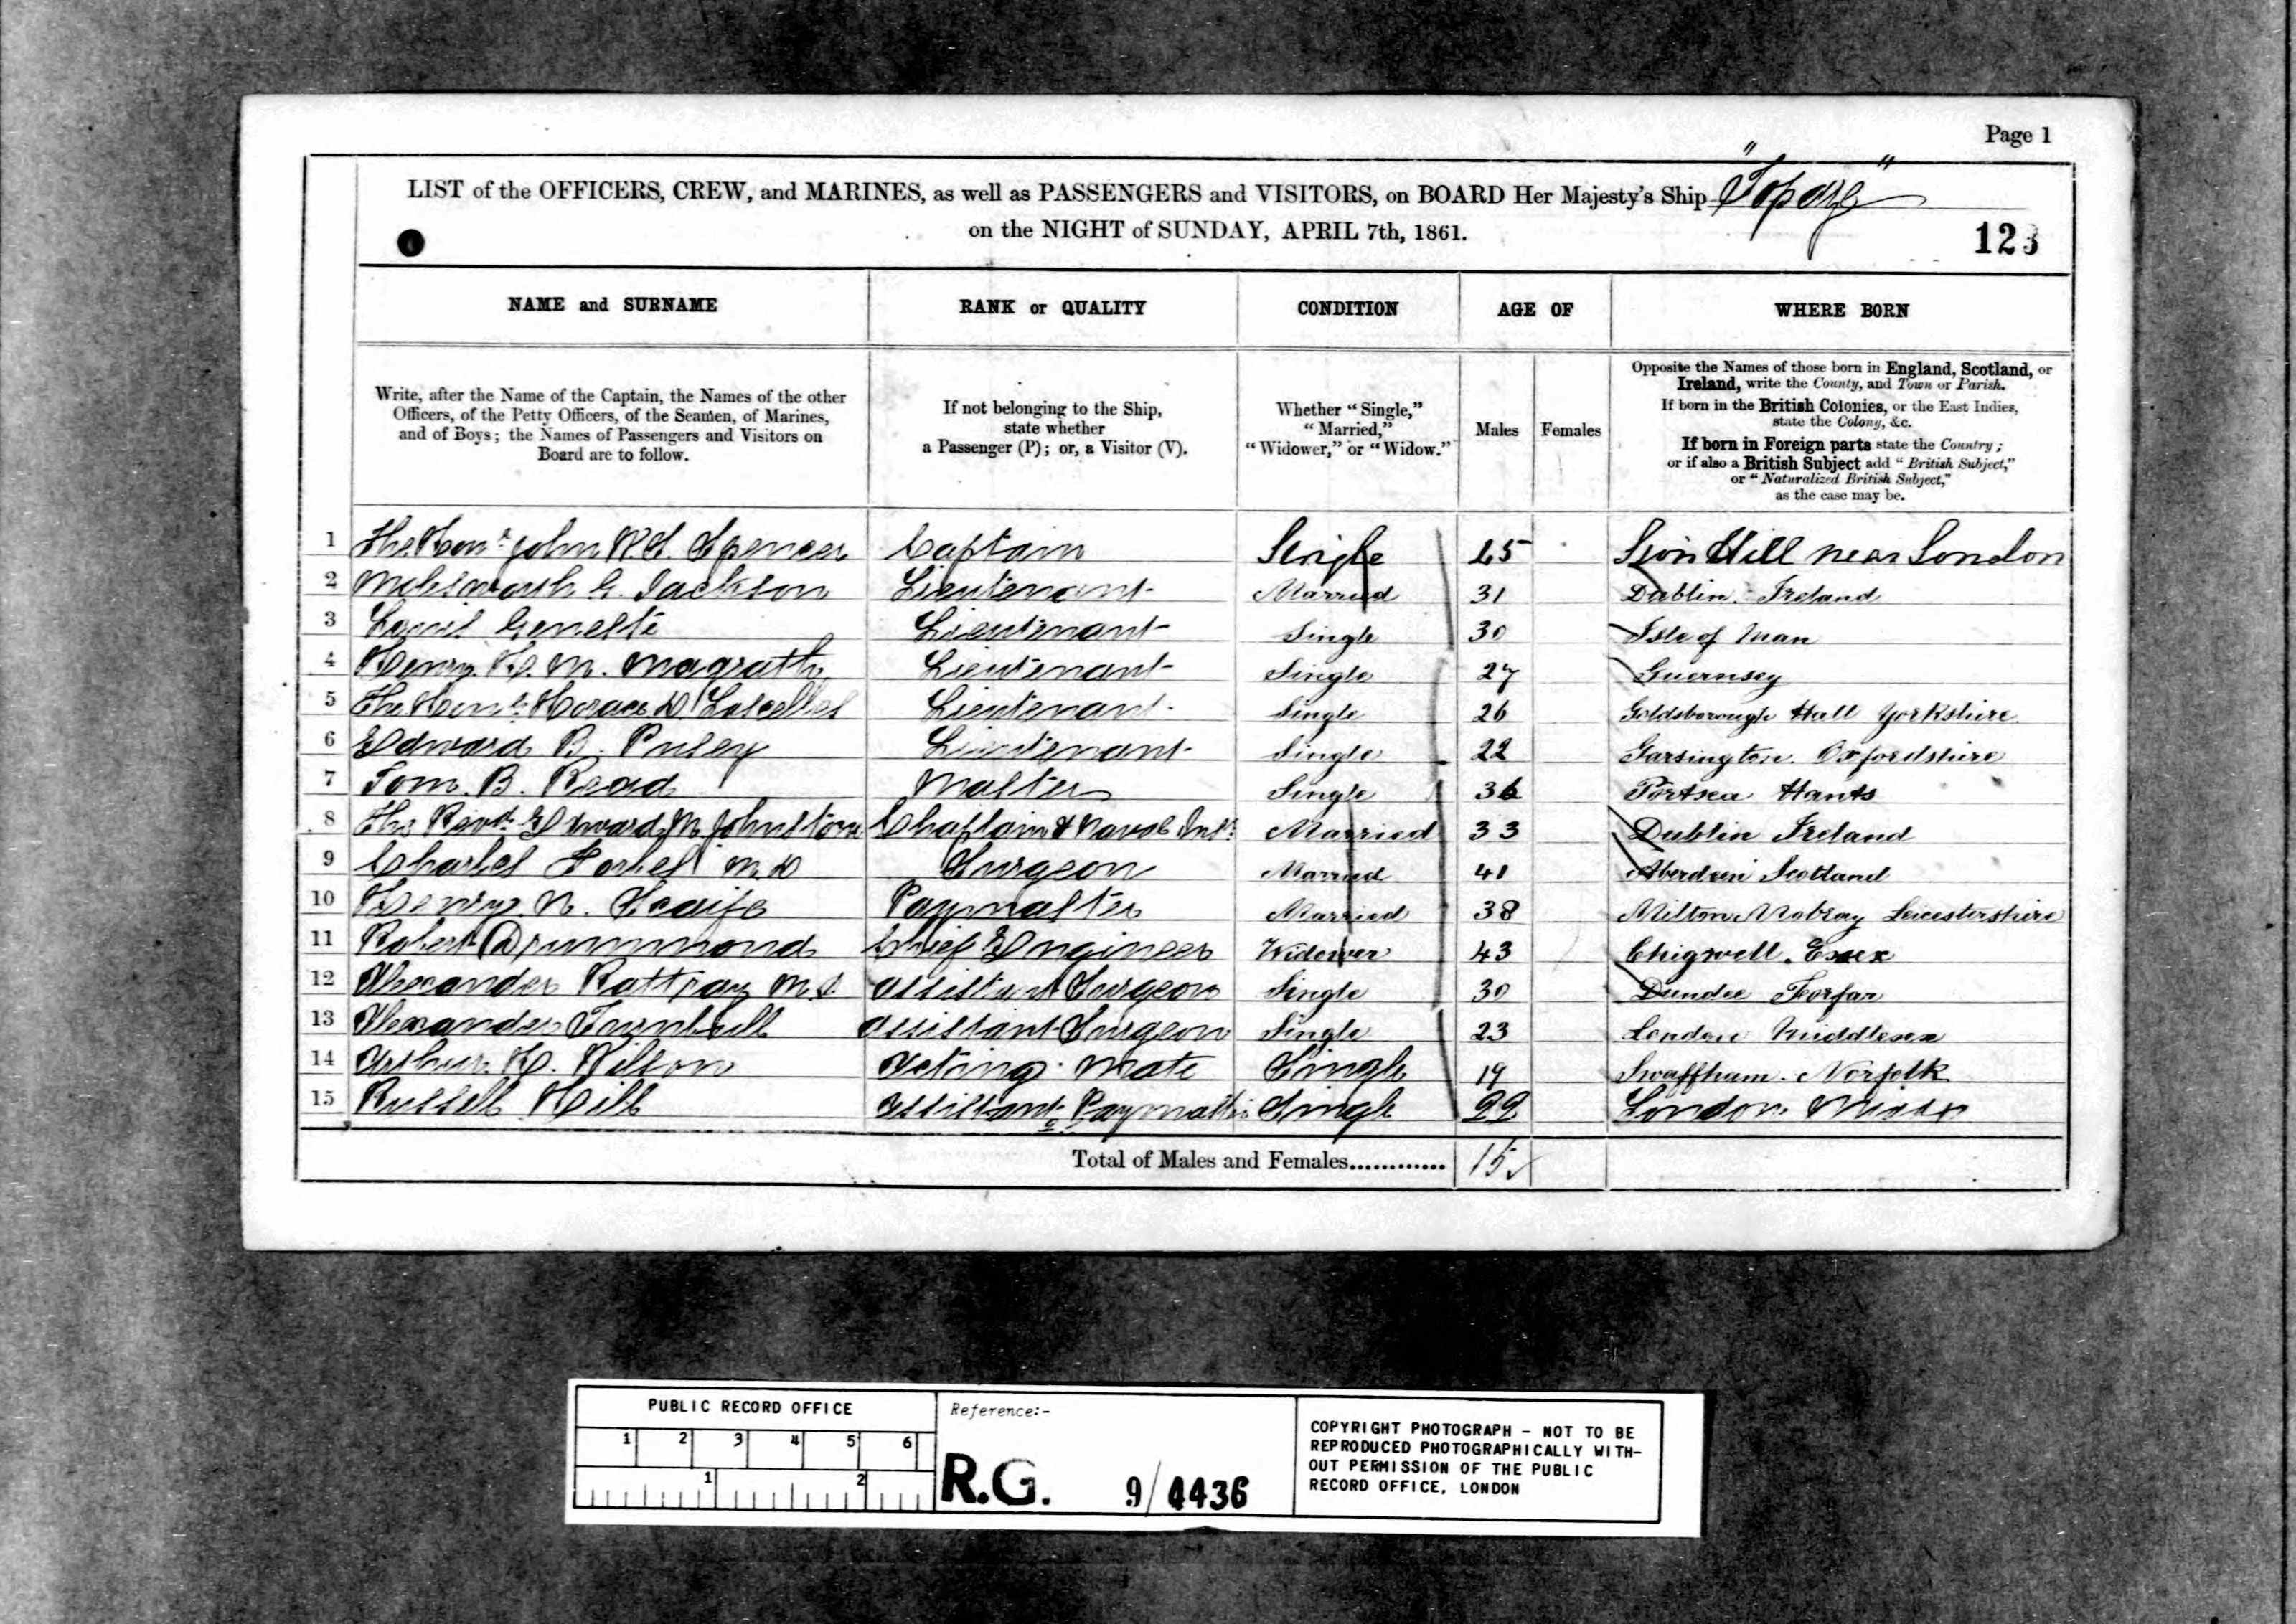 Page 1
LIST of the OFFICERS, CREW, and MARINES, as well as PASSENGERS and VISITORS, on BOARD Her Majesty's Ship "Topaze"
on the NIGHT of SUNDAY, APRIL 7th, 1861.
123
NAME and SURNAME RANK or QUALITY CONDITION AGE OF WHERE BORN
Write, after the Name of the Captain, the Names of the other
Officers, of the Petty Officers, of the Seamen, of Marines,
and of Boys; the Names of Passengers and Visitors on
Board are to follow.
If not belonging to the Ship,
state whether
a Passenger (P); or, a Visitor (V).
Whether "Single,"
"Married,"
"Widower," or "Widow."
Males Females
Opposite the Names of those born in England, Scotland, or
Ireland, write the County, and Town or Parish.
If born in the British Colonies, or the East Indies,
state the Colony, &c.
If born in Foreign parts state the Country;
or if also a British Subject add "British Subject,"
or "Naturalized British Subject,"
as the case may be.
1 The Honble John W S. Spencer Captain Single 45 Sion Hill near London
2 Molesworth G. Jackson Lieutenant Married 31 Dublin. Ireland
3 Louis Geneste Lieutenant Single 30 Isle of Man
4 Henry H. M. Magrath Lieutenant Single 27 Guernsey
5 The Honble Horace D Lascelles Lieutenant Single 26 Goldsborough Hall Yorkshire
6 Edward B. Pusey Lieutenant Single 22 Garsington. Oxfordshire
7 Tom. B. Read Master Single 36 Portsea Hants
8 The Revd. Edward M Johnstone Chaplain & Naval Inst. Married 33 Dublin Ireland
9 Charles Forbes M.D Surgeon Married 41 Aberdeen Scotland
10 Henry N. Scaife Paymaster Married 38 Milton Mobray Leicestershire
11 Robert Drummond Chief Engineer Widower 43 Chigwell. Essex
12 Alexander Rattray M.D. Assistant Surgeon Single 30 Dundee Forfar
13 Alexander Turnbull Assistant Surgeon Single 23 London Middlesex
14 Arthur K. Wilson Acting Mate Single 19 Swaffham. Norfolk
15 Russell Hill Assistant Paymaster Single 22 London
Total of Males and Females............. 15
PUBLIC RECORD OFFICE
1 2 3 4 5 6
1 2
Reference:-
R.G. 9/4436
COPYRIGHT PHOTOGRAPH – NOT TO BE
REPRODUCED PHOTOGRAPHICALLY WITH-
OUT PERMISSION OF THE PUBLIC
RECORD OFFICE, LONDON